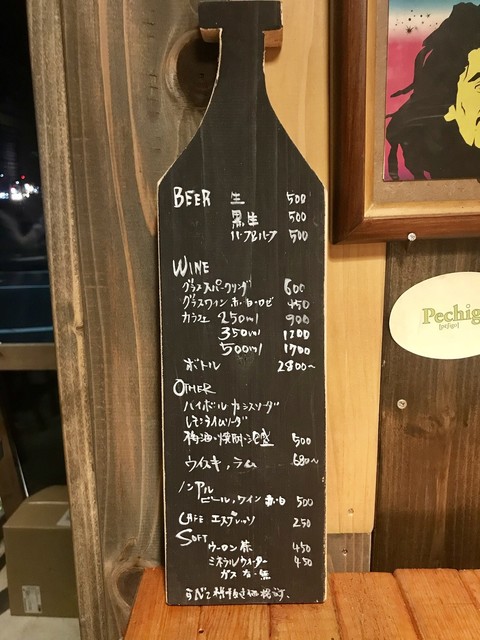 BEER 生 500
黒生 500
ハーフ&ハーフ 500
WINE
グラススパークリング 600
グラスワイン 赤・白・ロゼ 450
カラフェ 250ml 900
350ml 1200
500ml 1700
ボトル 2800~
OTHER
ハイボール カシスソーダ
レモンライムソーダ
梅酒・焼酎・泡盛 500
ウイスキー, ラム 680~
ノンアル
ビール, ワイン 赤・白 500
CAFE エスプレッソ 250
SOFT
ウーロン茶 450
ミネラルウォーター 450
ガス 有・無
すべて税抜き価格です、
Pechig